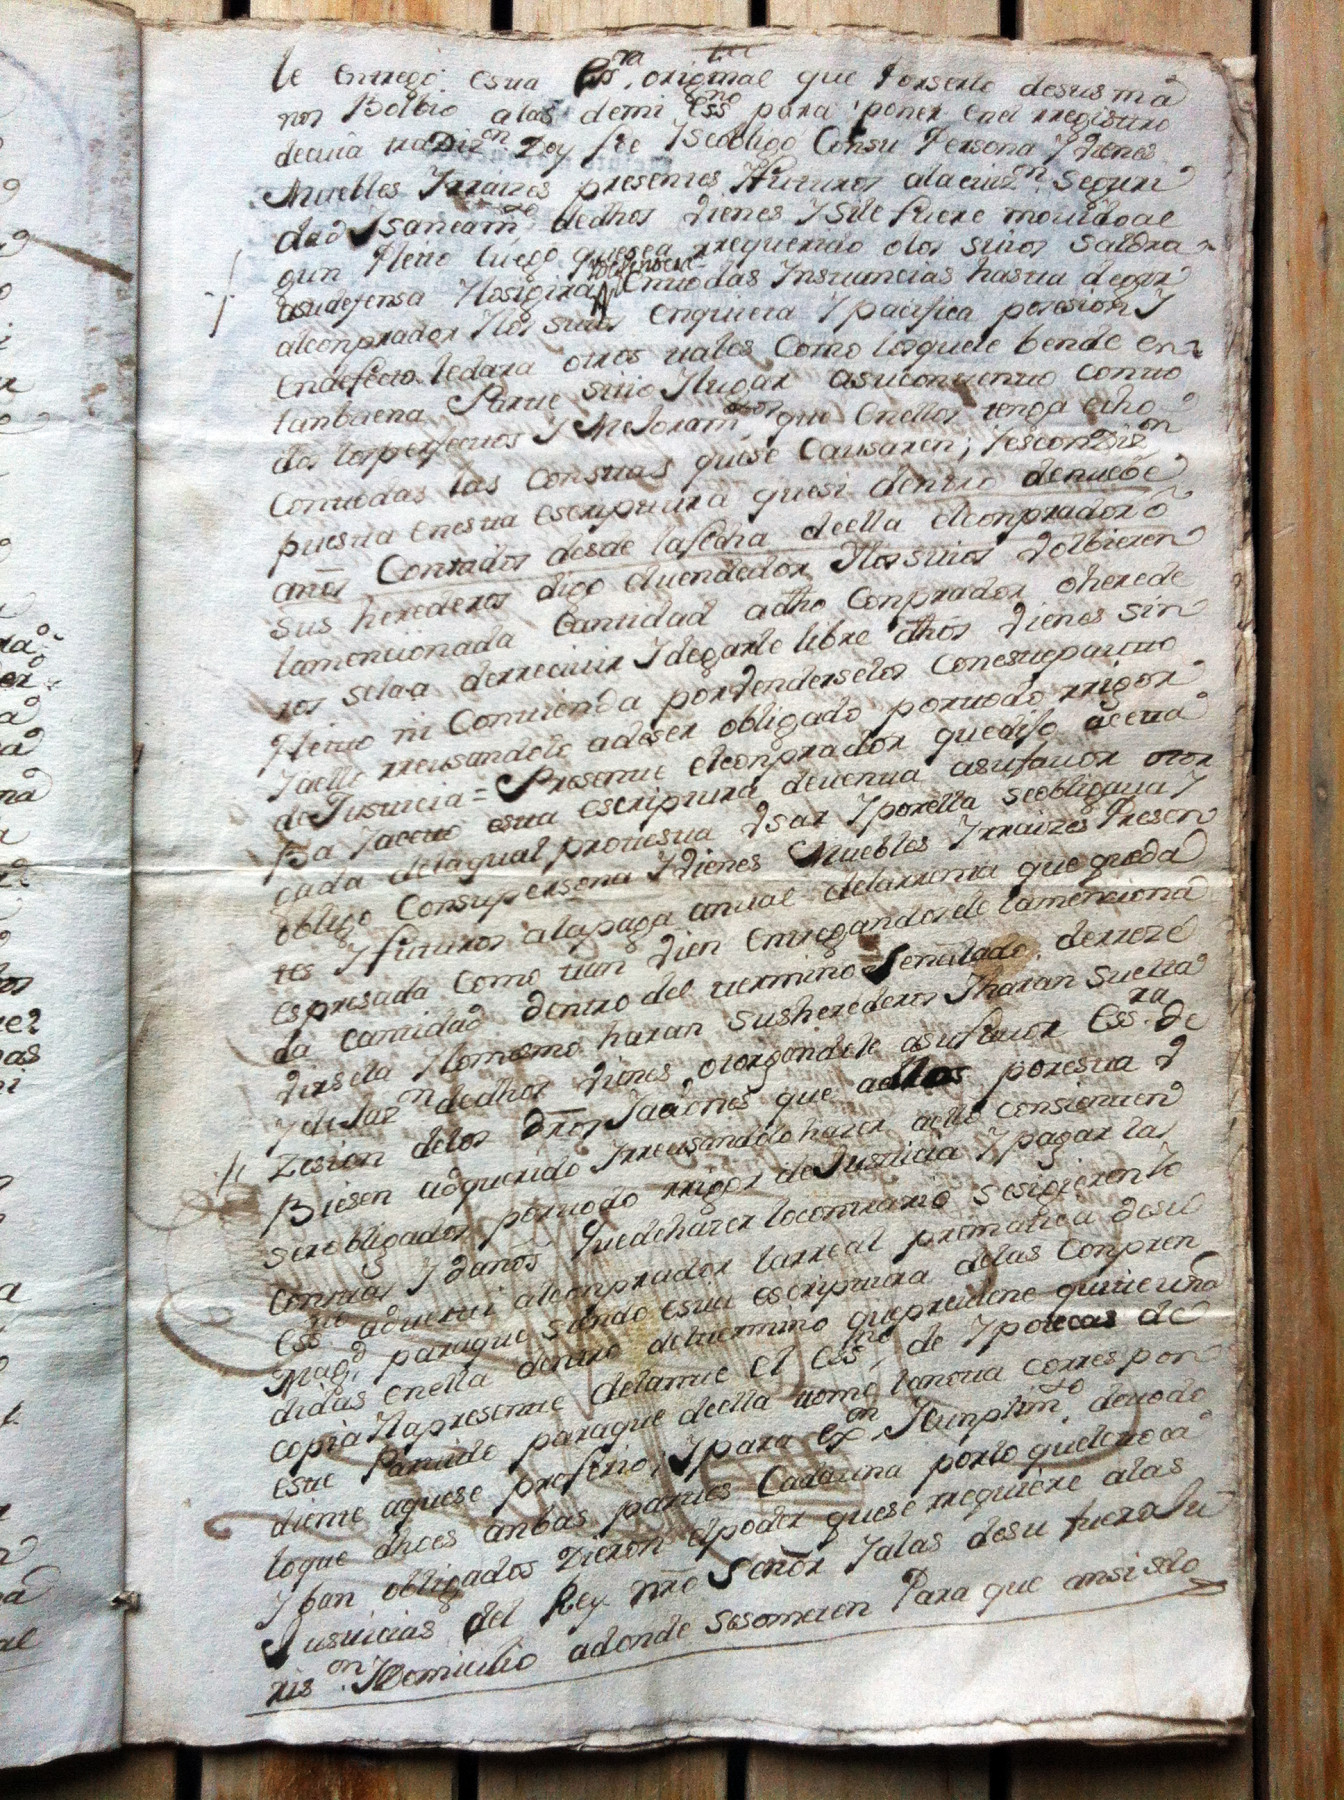 le entrego esta Essra. original que por serlo desus ma
nos Bolbio alas demi Essno para poner enel rregistro
decuia tradizon Doy fee Yseobligo Consu Persona Y vienes
Muebles Yrraizes presentes Yfuturos ala euizn. Seguri
dad Ysaneamto dedhos vienes Ysile fuere mouido al
gun Pleito luego quesea rrequerido olos suios Saldra
asudefensa Ylosigira entodas Instancias hasta dejar
alconprador Ylos suios enquieta Ypacifica posesion Y
endefecto ledara otros tales Como losquele bende en
tanbuena Parte sitio Ylugar asucontento conto
dos losperfectos YMejoramtos que enellos tenga echo
Contodas las Constas quese Causaren; Yescondizon
puesta enesta escriptura quesi dentro denuebe
años Contados desde lafecha deella elconprador o
sus herederos digo eluendedor Ylos suios volbieren
lamencionada Cantidad adho Conprador o herede
ros sela a derreciuir Ydejarle libre dhos vienes sin
Pleito ni Contienda por venderselos Conestepacto
Yaello rreusandolo adeser obligado portodo rrigor
de Justicia = Presente elconprador quedijo aceta
Ba Yaceto esta escriptura deuenta asufauor otor
cada delaqual protesta Vsar Yporella seobligaua Y
obligo Consupersona Yvienes Muebles Yrraizes Presen
tes Yfuturos alapaga anual delarrenta que queda
espresada Como tan vien entregandosele lamenciona
da cantidad dentro del termino Señalado derrece
virsela Ylomismo haran susherederos Yharan suelta
Ydejazon dedhos vienes otorgandole asufauor Essra de
Zesion delos dros Yaciones que aellos poresta V
Biesen adquerido Yrreusandolo hazer aello consienten
serobligados portodo rrigor de Justicia Ypagar las
Constas Ydaños Quedehazer locontrario sesigieren Yo
Essno aduerti alconprador larreal premarica desu
Magd. paraque siendo esta escriptura delas Conpren
didas enella dentro deltermino quepreuiene quite una
copia Ylapresente delante el essno. de Ypotecas de
este Partido paraque deella tome lanota correspon
diente aquese prefirio; Ypara exon Ycunplimto detodo
loque dhoes anbas partes Cadauna porlo queletoca
Yban obligados Dieron elpoder quese rrequiere alas
Justicias del Rey nro Señor Yalas desu fuero Ju
rison. YDomicilio adonde sesometen Para que ansi selo